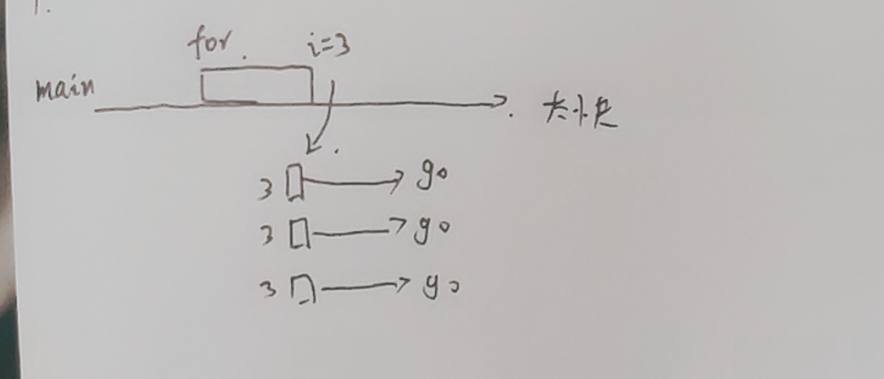 1.
for. i=3
main
3 go
3 go
3 go